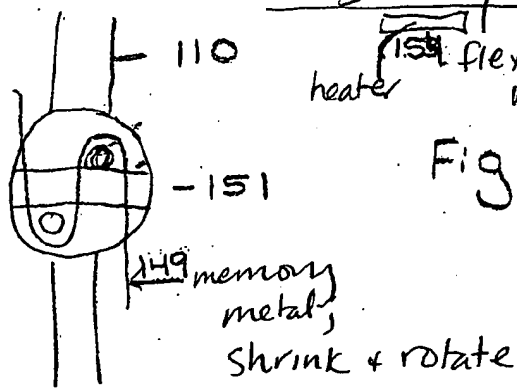 110
154 flex
heater
Fig
-151
149 memory
metal,
shrink + rotate